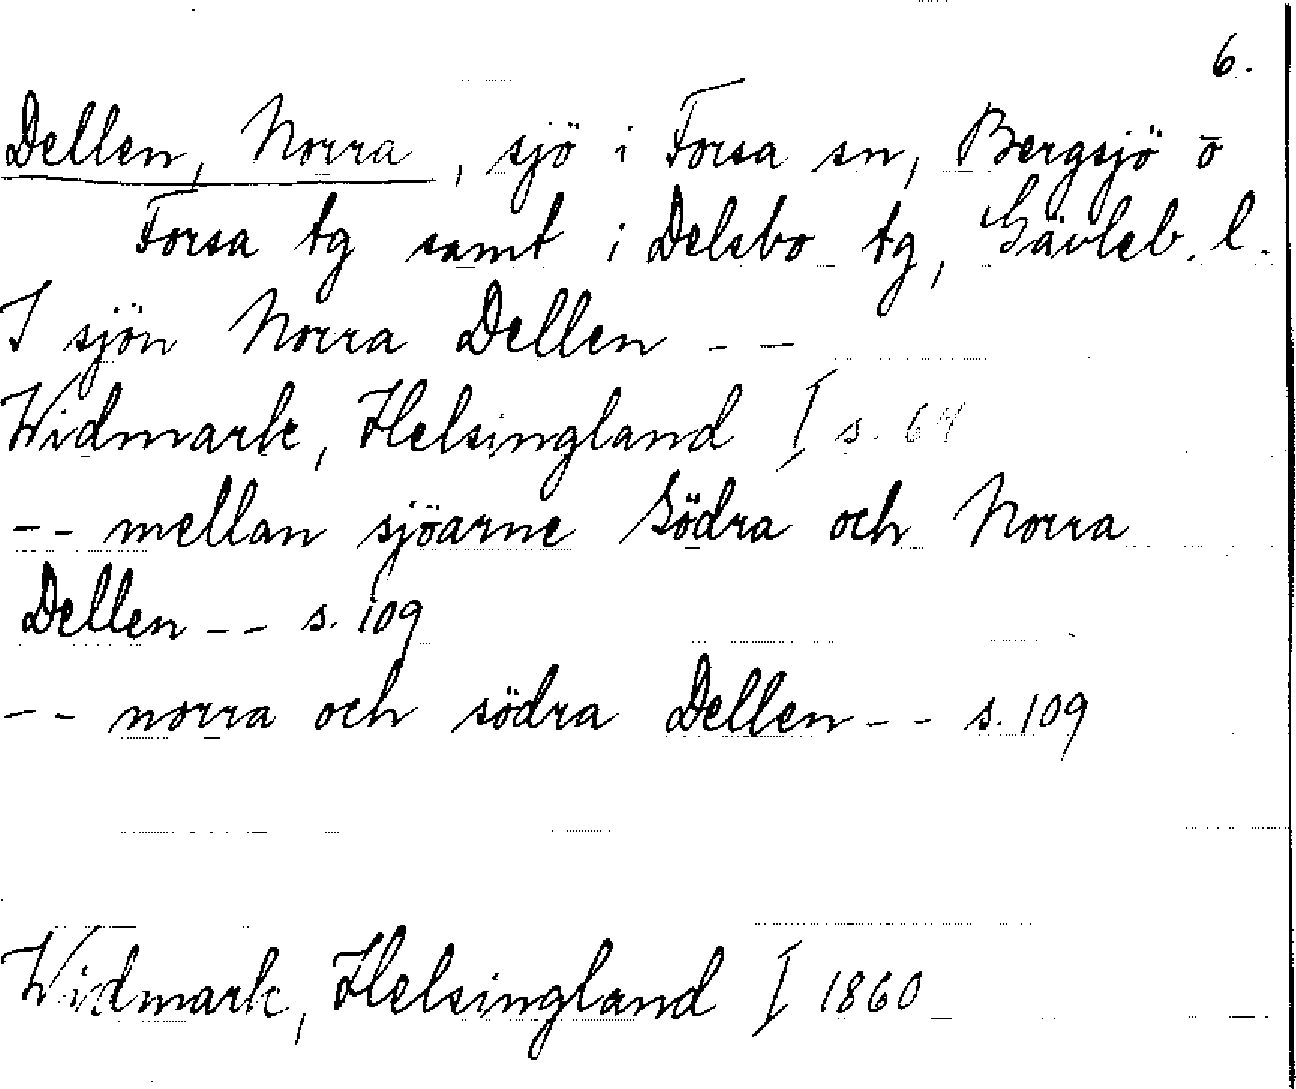 6.
Dellen, Norra, sjö i Forsa sn, Bergsjö o
Forsa tg samt i Delsbo tg, Gävleb. l.
I sjön Norra Dellen - -
Widmark, Helsingland I s. 64
- - mellan sjöarne Södra och Norra
Dellen - - s. 109
- - norra och södra Dellen - - s. 109
Widmark, Helsingland I 1860